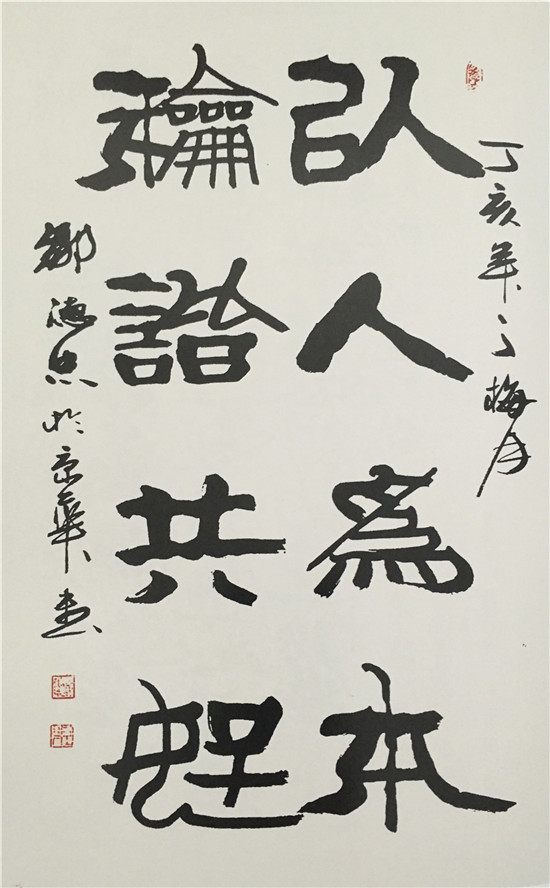 丁亥年之梅月
以人為本
龢詥共
鄒德忠於京華書